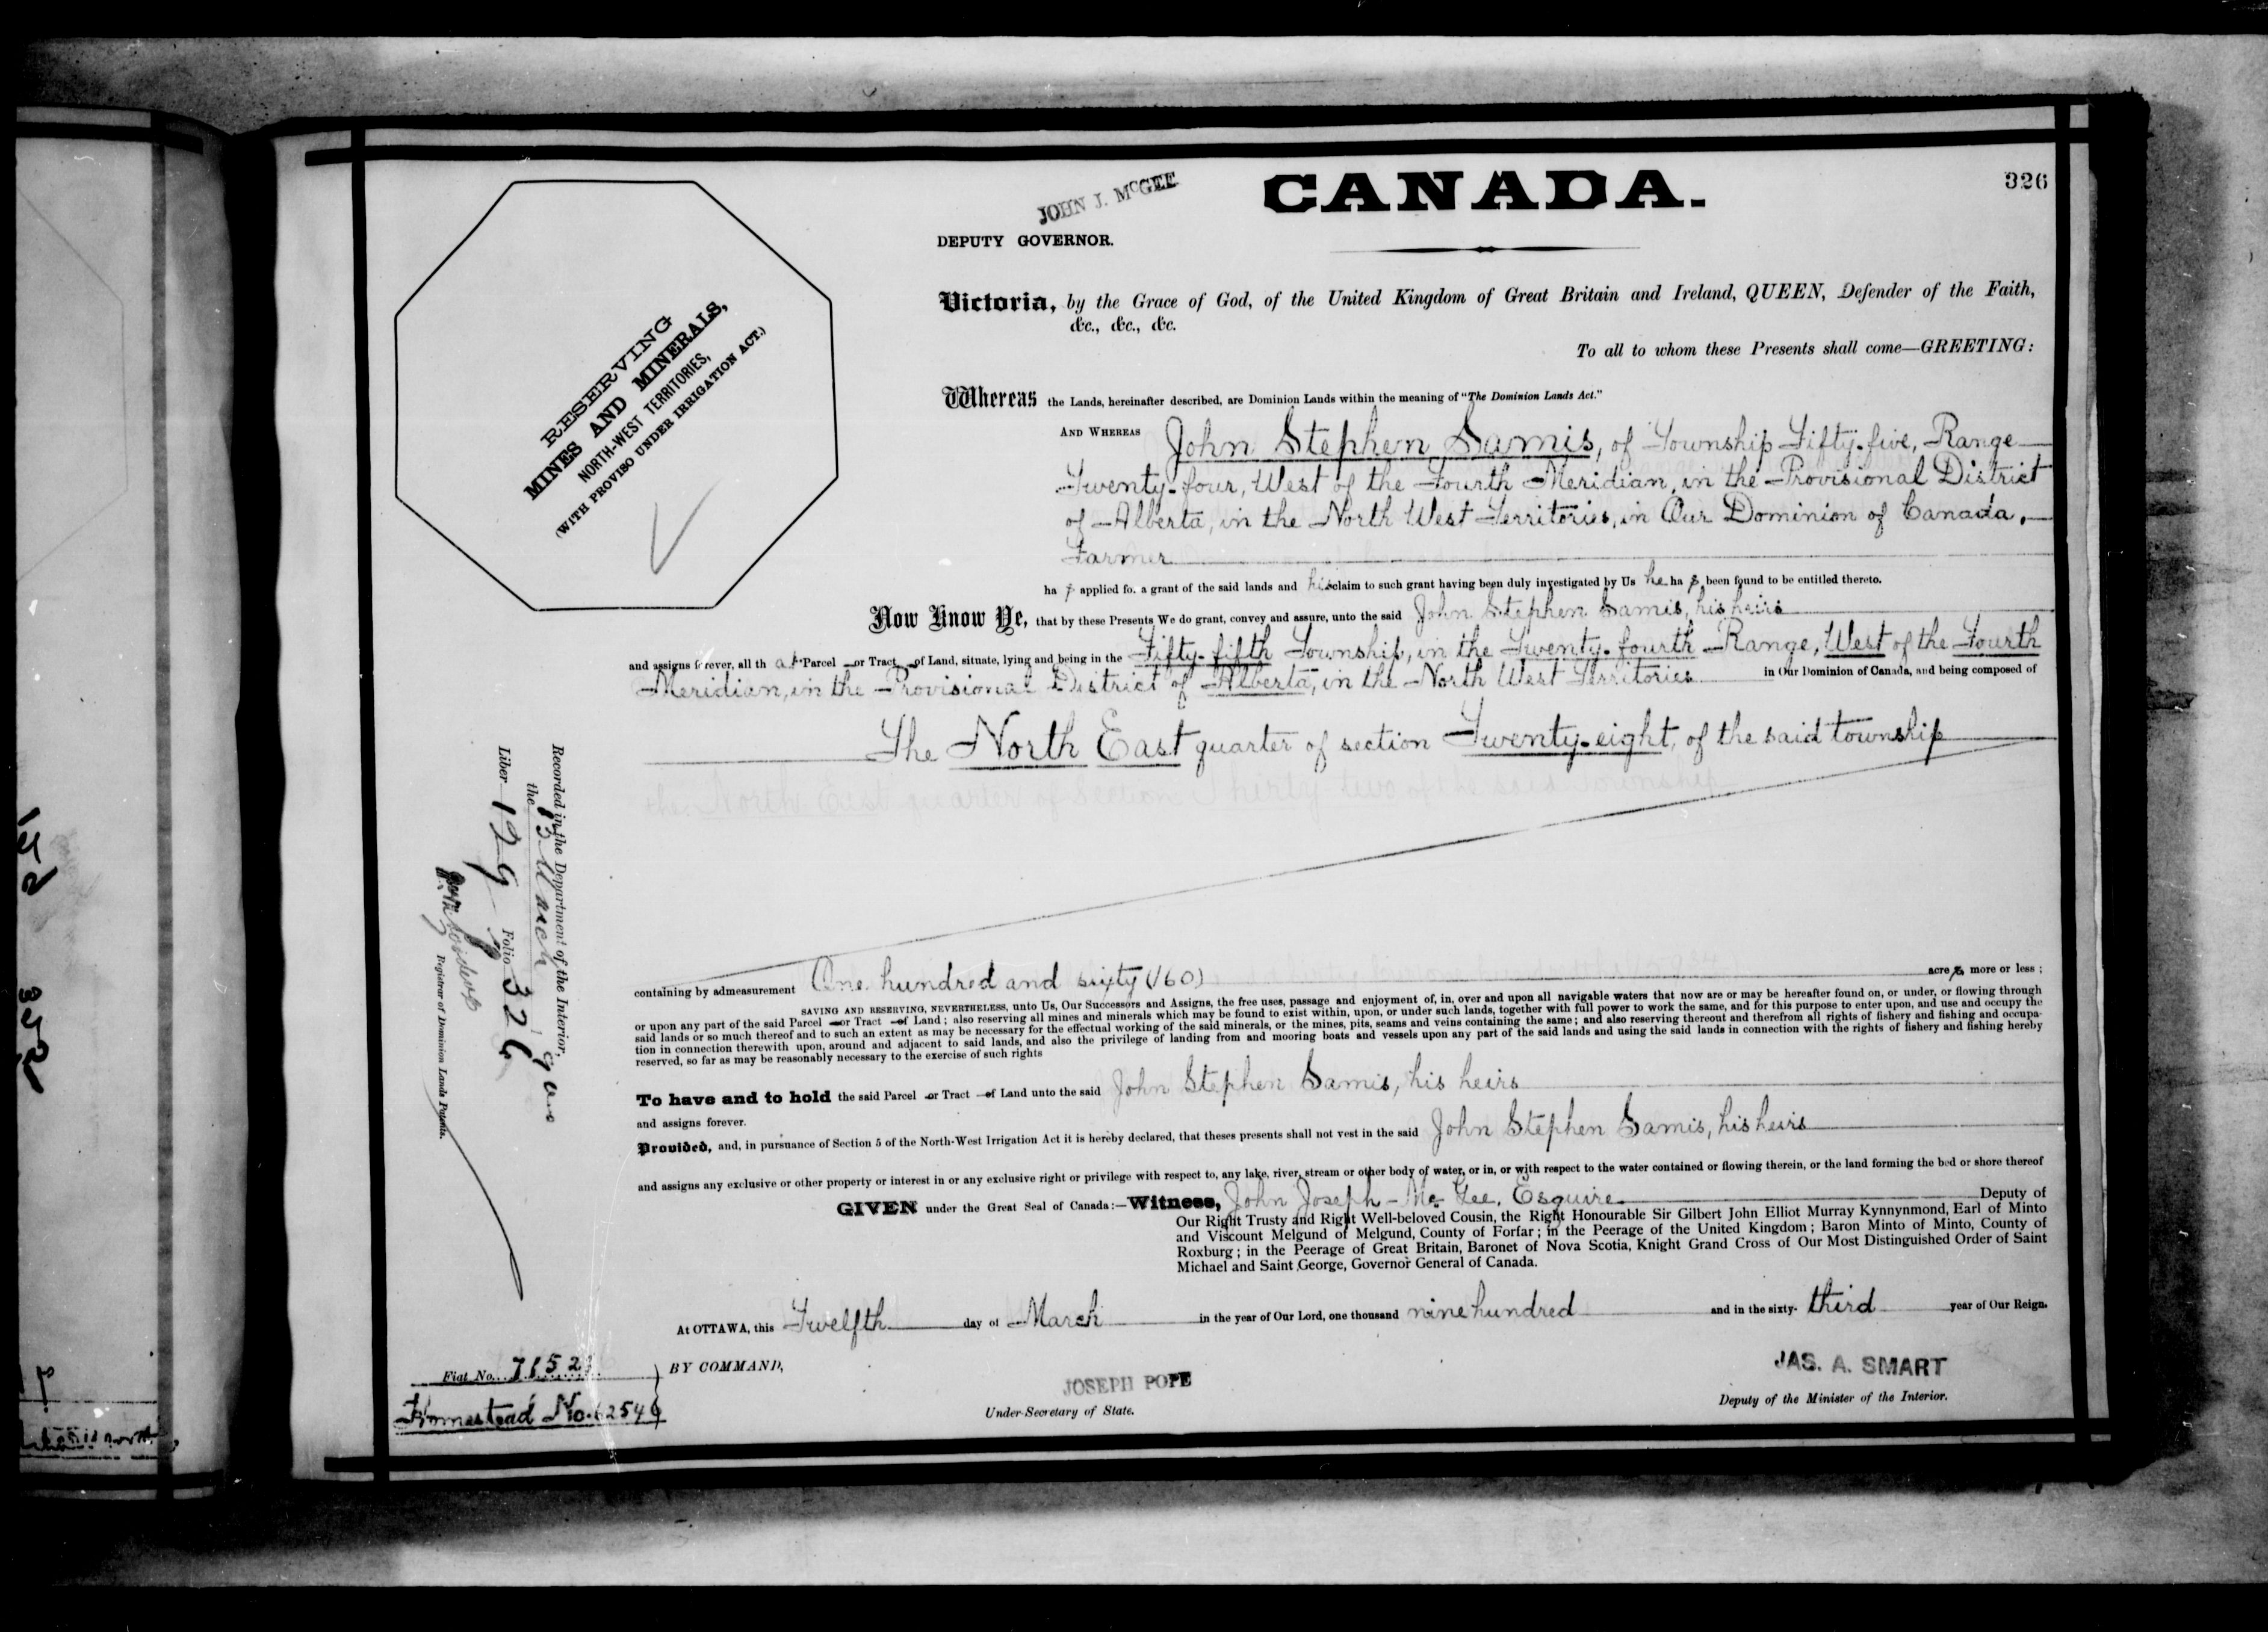 326
CANADA.
JOHN J. McGEE
DEPUTY GOVERNOR.
RESERVING
MINES AND MINERALS,
NORTH-WEST TERRITORIES,
(WITH PROVISO UNDER IRRIGATION ACT.)
Victoria, by the Grace of God, of the United Kingdom of Great Britain and Ireland, QUEEN, Defender of the Faith,
&c., &c., &c.
To all to whom these Presents shall come—GREETING:
Whereas the Lands, hereinafter described, are Dominion Lands within the meaning of "The Dominion Lands Act."
AND WHEREAS John Stephen Samis, of Township Fifty-five, Range
Twenty-four, West of the Fourth Meridian, in the Provisional District
of Alberta, in the North West Territories, in Our Dominion of Canada,
Farmer
ha s applied fo. a grant of the said lands and his claim to such grant having been duly investigated by Us he ha s been found to be entitled thereto.
Now Know Ye, that by these Presents We do grant, convey and assure, unto the said John Stephen Samis, his heirs
and assigns forever, all th at Parcel or Tract of Land, situate, lying and being in the Fifty-fifth Township, in the Twenty-fourth Range, West of the Fourth
Meridian, in the Provisional District of Alberta, in the North West Territories in Our Dominion of Canada, and being composed of
The North East quarter of section Twenty-eight, of the said township
containing by admeasurement One hundred and sixty (160) acre s more or less ;
SAVING AND RESERVING, NEVERTHELESS, unto Us, Our Successors and Assigns, the free uses, passage and enjoyment of, in, over and upon all navigable waters that now are or may be hereafter found on, or under, or flowing through
or upon any part of the said Parcel or Tract of Land ; also reserving all mines and minerals which may be found to exist within, upon, or under such lands, together with full power to work the same, and for this purpose to enter upon, and use and occupy the
said lands or so much thereof and to such an extent as may be necessary for the effectual working of the said minerals, or the mines, pits, seams and veins containing the same ; and also reserving thereout and therefrom all rights of fishery and fishing and occupa-
tion in connection therewith upon, around and adjacent to said lands, and also the privilege of landing from and mooring boats and vessels upon any part of the said lands and using the said lands in connection with the rights of fishery and fishing hereby
reserved, so far as may be reasonably necessary to the exercise of such rights
To have and to hold the said Parcel or Tract of Land unto the said John Stephen Samis, his heirs
and assigns forever.
Provided, and, in pursuance of Section 5 of the North-West Irrigation Act it is hereby declared, that theses presents shall not vest in the said John Stephen Samis, his heirs
and assigns any exclusive or other property or interest in or any exclusive right or privilege with respect to, any lake, river, stream or other body of water, or in, or with respect to the water contained or flowing therein, or the land forming the bed or shore thereof
GIVEN under the Great Seal of Canada:—Witness, John Joseph McGee, Esquire Deputy of
Our Right Trusty and Right Well-beloved Cousin, the Right Honourable Sir Gilbert John Elliot Murray Kynnynmond, Earl of Minto
and Viscount Melgund of Melgund, County of Forfar ; in the Peerage of the United Kingdom ; Baron Minto of Minto, County of
Roxburg ; in the Peerage of Great Britain, Baronet of Nova Scotia, Knight Grand Cross of Our Most Distinguished Order of Saint
Michael and Saint George, Governor General of Canada.
At OTTAWA, this Twelfth day of March in the year of Our Lord, one thousand nine hundred and in the sixty- third year of Our Reign.
BY COMMAND,
JOSEPH POPE
Under-Secretary of State.
JAS. A. SMART
Deputy of the Minister of the Interior.
Fiat No.
Homestead No. 62546
Recorded in the Department of the Interior,
the 13 March 1900
Liber 129 Folio 326
Registrar of Dominion Lands Patents.